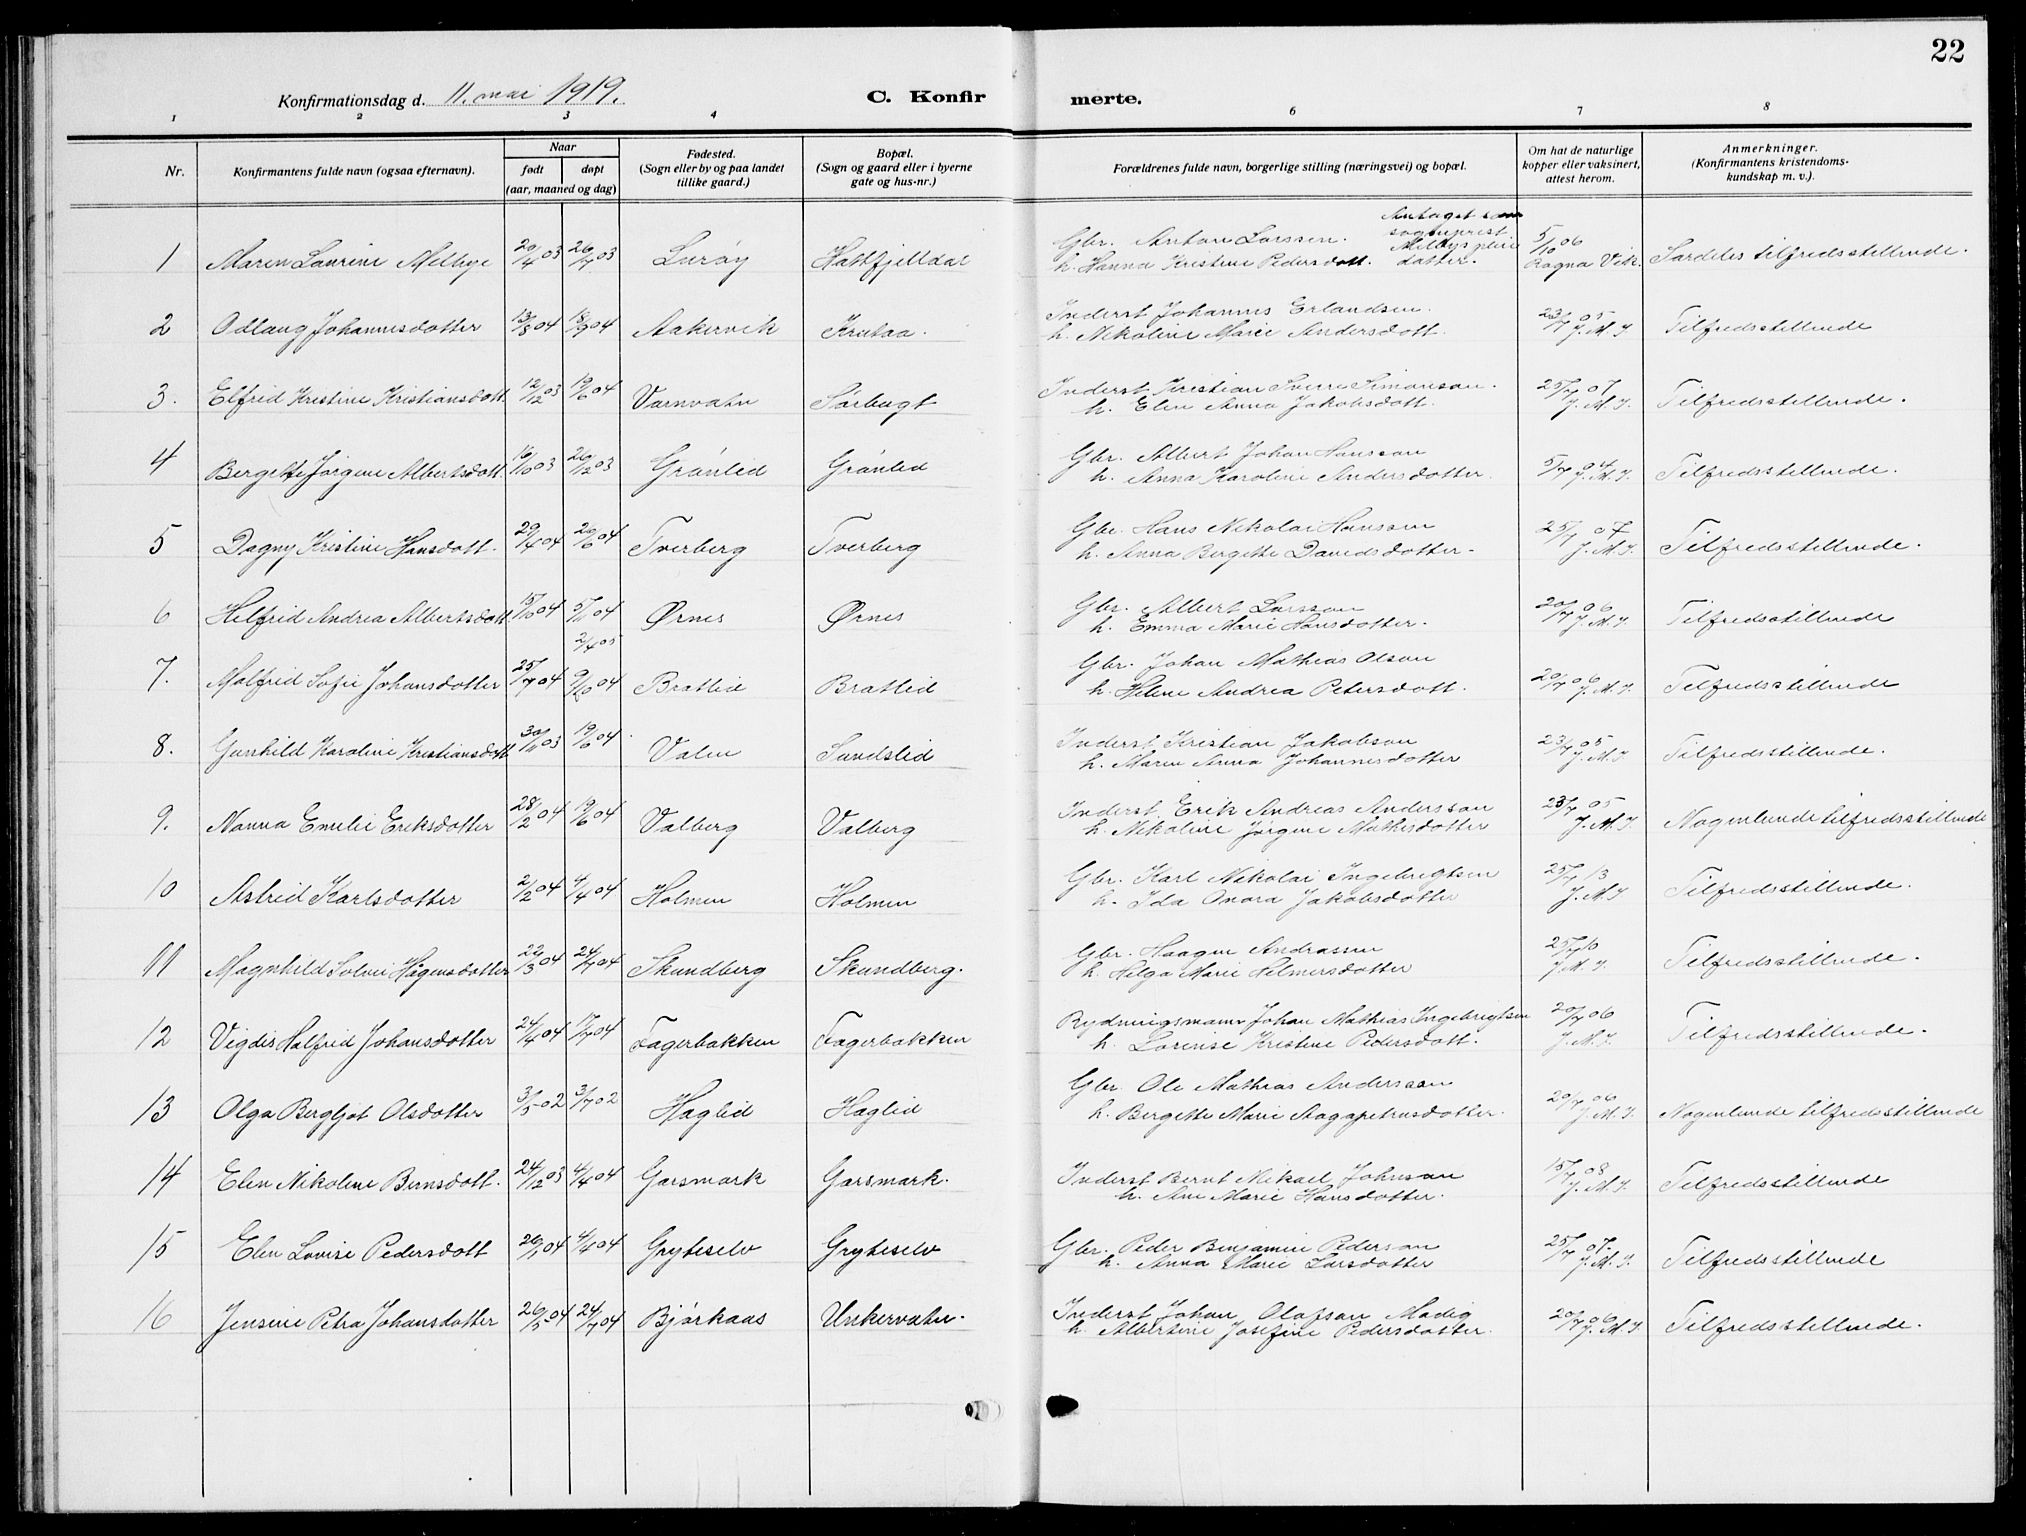 22
Konfirmationsdag d. 11. mai 1919.
C. Konfirmerte.
1 2 3 4 6 7 8
Nr. Konfirmantens fulde navn (ogsaa efternavn). Naar født døpt (aar, maaned og dag) Fødested. (Sogn eller by og paa landet tillike gaard.) Bopæl. (Sogn og gaard eller i byerne gate og hus-nr.) Forældrenes fulde navn, borgerlige stilling (næringsvei) og bopæl. Om hat de naturlige kopper eller vaksinert, attest herom. Anmerkninger. (Konfirmantens kristendomskundskap m. v.).
1 Maren Laurine Melbye 29/4 03 26/7 03 Lurøy Hattfjelldal Gbr. Anton Larssen. h. Hanna Kristine Pedersdatt. Antaget som sogneprest Melbys pleiedatter. 5/10 06 Ragna Vik. Særdeles tilfredsstillende.
2 Odlaug Johannesdotter 13/8 04 18/9 04 Aakervik Krutaa. Inderst Johannes Erlandsen. h. Nikoline Marie Andersdott. 23/7 05 J. M. J. Tilfredsstillende
3. Elfrid Kristine Kristiansdott. 12/12 03 19/6 04 Varnvatn Sørbugt Inderst Kristian Sverre Simonson. h. Elen Anna Jakobsdott. 25/7 07 J. M. J. Tilfredsstillende.
4 Bergette Jørgine Albertsdott. 16/10 03 26/12 03 Grønlid Grønlid Gbr. Albert Johan Hansson h. Anna Karoline Andersdotter. 5/7 04 J. M. J. Tilfredsstillende.
5 Dagny Kristine Hansdott. 29/4 04 26/6 04 Tverberg Tverberg Gbr. Hans Nikolai Hanssen h. Anna Bergitte Davidsdotter. 25/7 07 J. M. J. Tilfredsstillende.
6 Hilfrid Andrea Albertsdott. 15/10 04 5/11 04 2/4 05 Ørnes Ørnes Gbr. Albert Larsson h. Emma Marie Hansdotter. 20/7 06 J. M. J. Tilfredsstillende
7. Malfrid Sofie Johansdotter 25/7 04 9/10 04 Bratlid Bratlid Gbr. Johan Mathias Olson h. Helene Andrea Petersdott. 20/7 06 J. M. J. Tilfredsstillende
8. Gunhild Karoline Kristiansdott 30/11 03 19/6 04 Valen Sundslid Inderst Kristian Jakobson h. Maren Anna Johannesdotter 23/7 05 J. M. J. Tilfredsstillende.
9. Nanna Emelie Eriksdotter 28/2 04 19/6 04 Valberg Valberg Inderst Erik Andreas Andersson h. Nikoline Jørgine Mathisdotter 23/7 05 J. M. J. Nogenlunde tilfredsstillende
10 Astrid Karlsdotter 2/2 04 4/4 04 Holmen Holmen Gbr. Karl Nikolai Ingebrigtsen h. Ida Onora Jakobsdotter 25/7 13 J. M. J Tilfredsstillende.
11 Magnhild Solvei Hågensdotter 22/3 04 24/7 04 Skundberg Skundberg. Gbr. Haagen Andrassen h. Helga Marie Helmersdotter 25/7 10 J. M. J. Tilfredsstillende.
12 Vigdis Halfrid Johansdotter 24/4 04 17/7 04 Fagerbakken Fagerbakken Rydningsmann Johan Mathias Ingebrigtsen h. Lorense Kristine Pedersdott. 20/7 06 J. M. J. Tilfredsstillende.
13 Olga Bergljot Olsdotter 3/5 02 3/7 02 Haglid Haglid Gbr. Ole Mathias Anderssen h. Bergette Marie Aagapetrusdotter. 20/7 06 J. M. J. Nogenlunde tilfredsstillende
14 Elen Nikoline Bernsdott. 24/12 03 4/4 04 Garsmark Garsmark. Inderst Bernt Mikael Johnson h. Ane Marie Hansdotter. 15/7 08 J. M. J. Tilfredsstillende
15 Elen Lovise Pedersdott 26/1 04 4/4 04 Gryteselv Gryteselv Gbr. Peder Benjamin Pederson h. Anna Marie Larsdotter 25/7 07. J. M. J. Tilfredsstillende
16 Jensine Petra Johansdotter 26/5 04 24/7 04 Bjørkaas Unkervatn. Inderst Johan Olafson Madig h. Albertine Josefine Pedersdotter. 20/7 06 J. M. J. Tilfredsstillende.